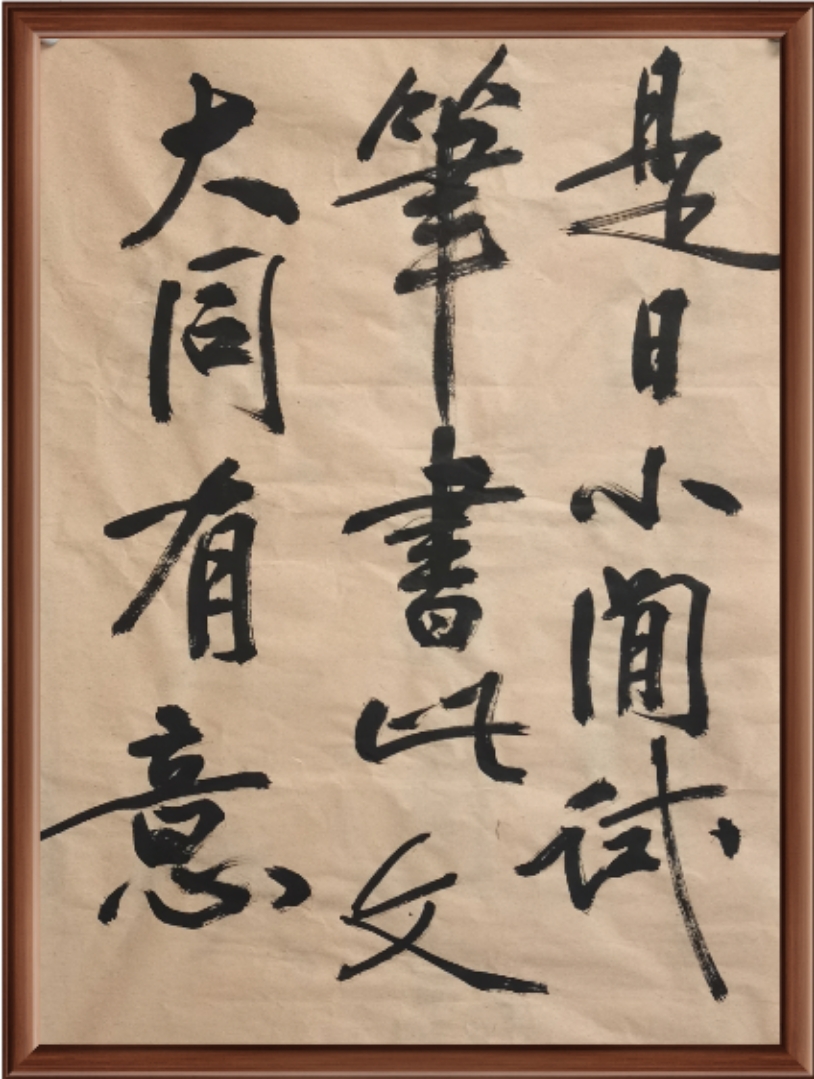 是日小閒試
筆書此文
大同有意